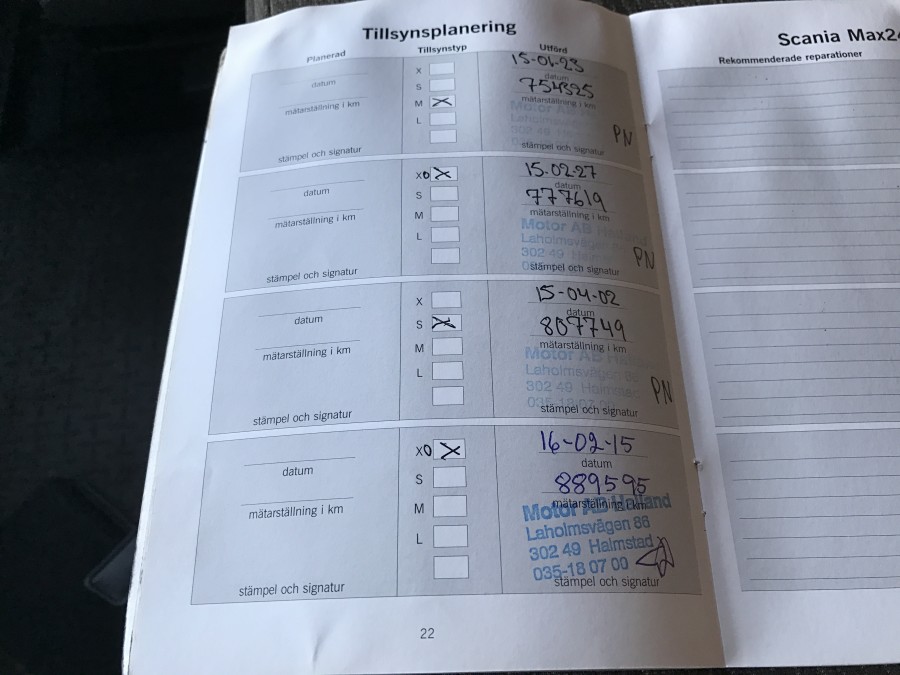 Tillsynsplanering
Planerad Tillsynstyp Utförd
datum
mätarställning i km
stämpel och signatur
X
S
M X
L
datum
754325
mätarställning i km
stämpel och signatur
PN
datum
mätarställning i km
stämpel och signatur
XO X
S
M
L
15.02.27
datum
777619
mätarställning i km
Motor AB
Laholmsvägen
302 49
stämpel och signatur
PN
datum
mätarställning i km
stämpel och signatur
X
S X
M
L
15-04-02
datum
807749
mätarställning i km
Motor AB Halland
Laholmsvägen 86
302 49 Halmstad
035-18 07 00
stämpel och signatur
PN
datum
mätarställning i km
stämpel och signatur
XO X
S
M
L
16-02-15
datum
889595
mätarställning i km
Motor AB Halland
Laholmsvägen 86
302 49 Halmstad
035-18 07 00
stämpel och signatur
22
Scania
Rekommenderade reparationer